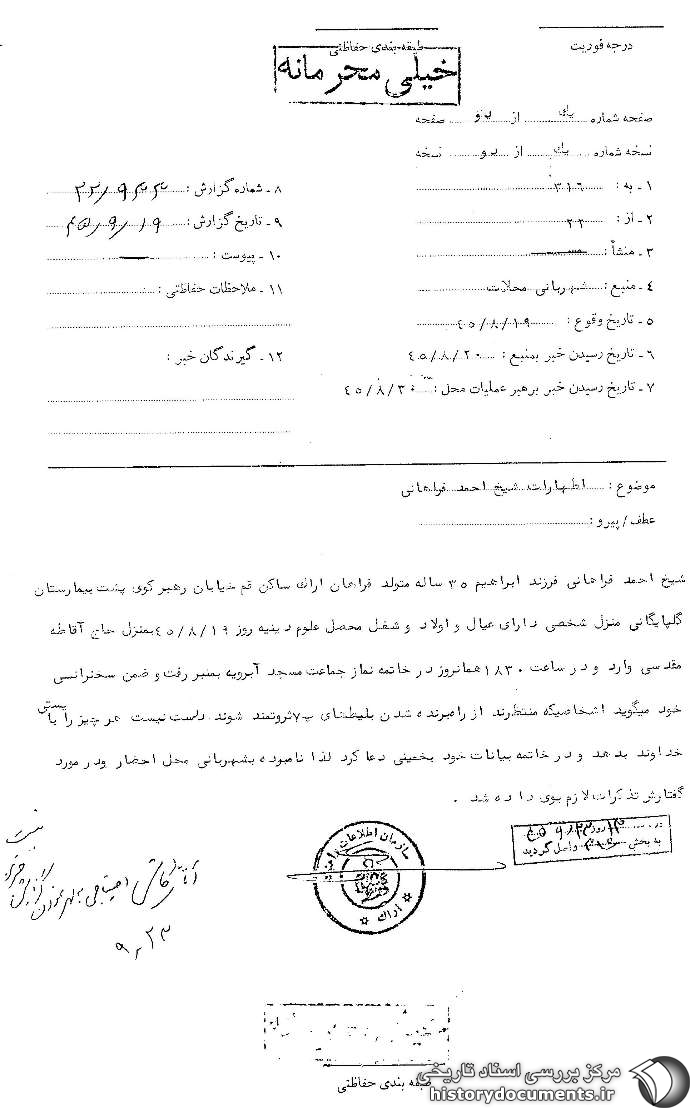 درجه فوریت
طبقه بندی حفاظتی
خیلی محرمانه
صفحه شماره یك از یو صفحه
نسخه شماره یك از یو نسخه
۱ـ به : ۳۱۶
۲ـ از : ۲۲
۳ـ منشأ :
۴ـ منبع : شهربانی محلات
۵ـ تاریخ وقوع : ۴۵/۸/۱۹
۶ـ تاریخ رسیدن خبر بمنبع : ۴۵/۸/۲۰
۷ـ تاریخ رسیدن خبر برهبر عملیات محل : ۴۵/۸/۳۰
۸ـ شماره گزارش : ۲۲/۹۴۴
۹ـ تاریخ گزارش : ۴۵/۹/۱۹
۱۰ـ پیوست :
۱۱ـ ملاحظات حفاظتی :
۱۲ـ گیرندگان خبر :
موضوع : اظهارات شیخ احمد فراهانی
عطف/پیرو :
شیخ احمد فراهانی فرزند ابراهیم ۳۵ ساله متولد فراهان اراك ساکن قم خیابان رهبر کوی پشت بیمارستان
گلپایگانی منزل شخصی دارای عیال و اولاد و شغل محصل علوم دینیه روز ۴۵/۸/۱۹ بمنزل حاج آقا
مقدسی وارد و در ساعت ۱۸۳۰ همانروز در خاتمه نماز جماعت مسجد آبرویه بمنبر رفت و ضمن سخنرانسی
خود میگوید اشخاصیکه منتظرند از راه برنده شدن بلیطهای ب۷ ثروتمند شوند داست نیست هر چیز را بایستی
خداوند بدهد و در خاتمه بیانات خود بخمینی دعا کرد لذا نامبرده بشهربانی محل احضار ودر مورد
گفتارش تذکرات لازم بوی داده شد .
در روز
به بخش واصل گردید
سازمان اطلاعات و
اراك
۹/۲۳
طبقه بندی حفاظتی
مرکز بررسی اسناد تاریخی
historydocuments.ir